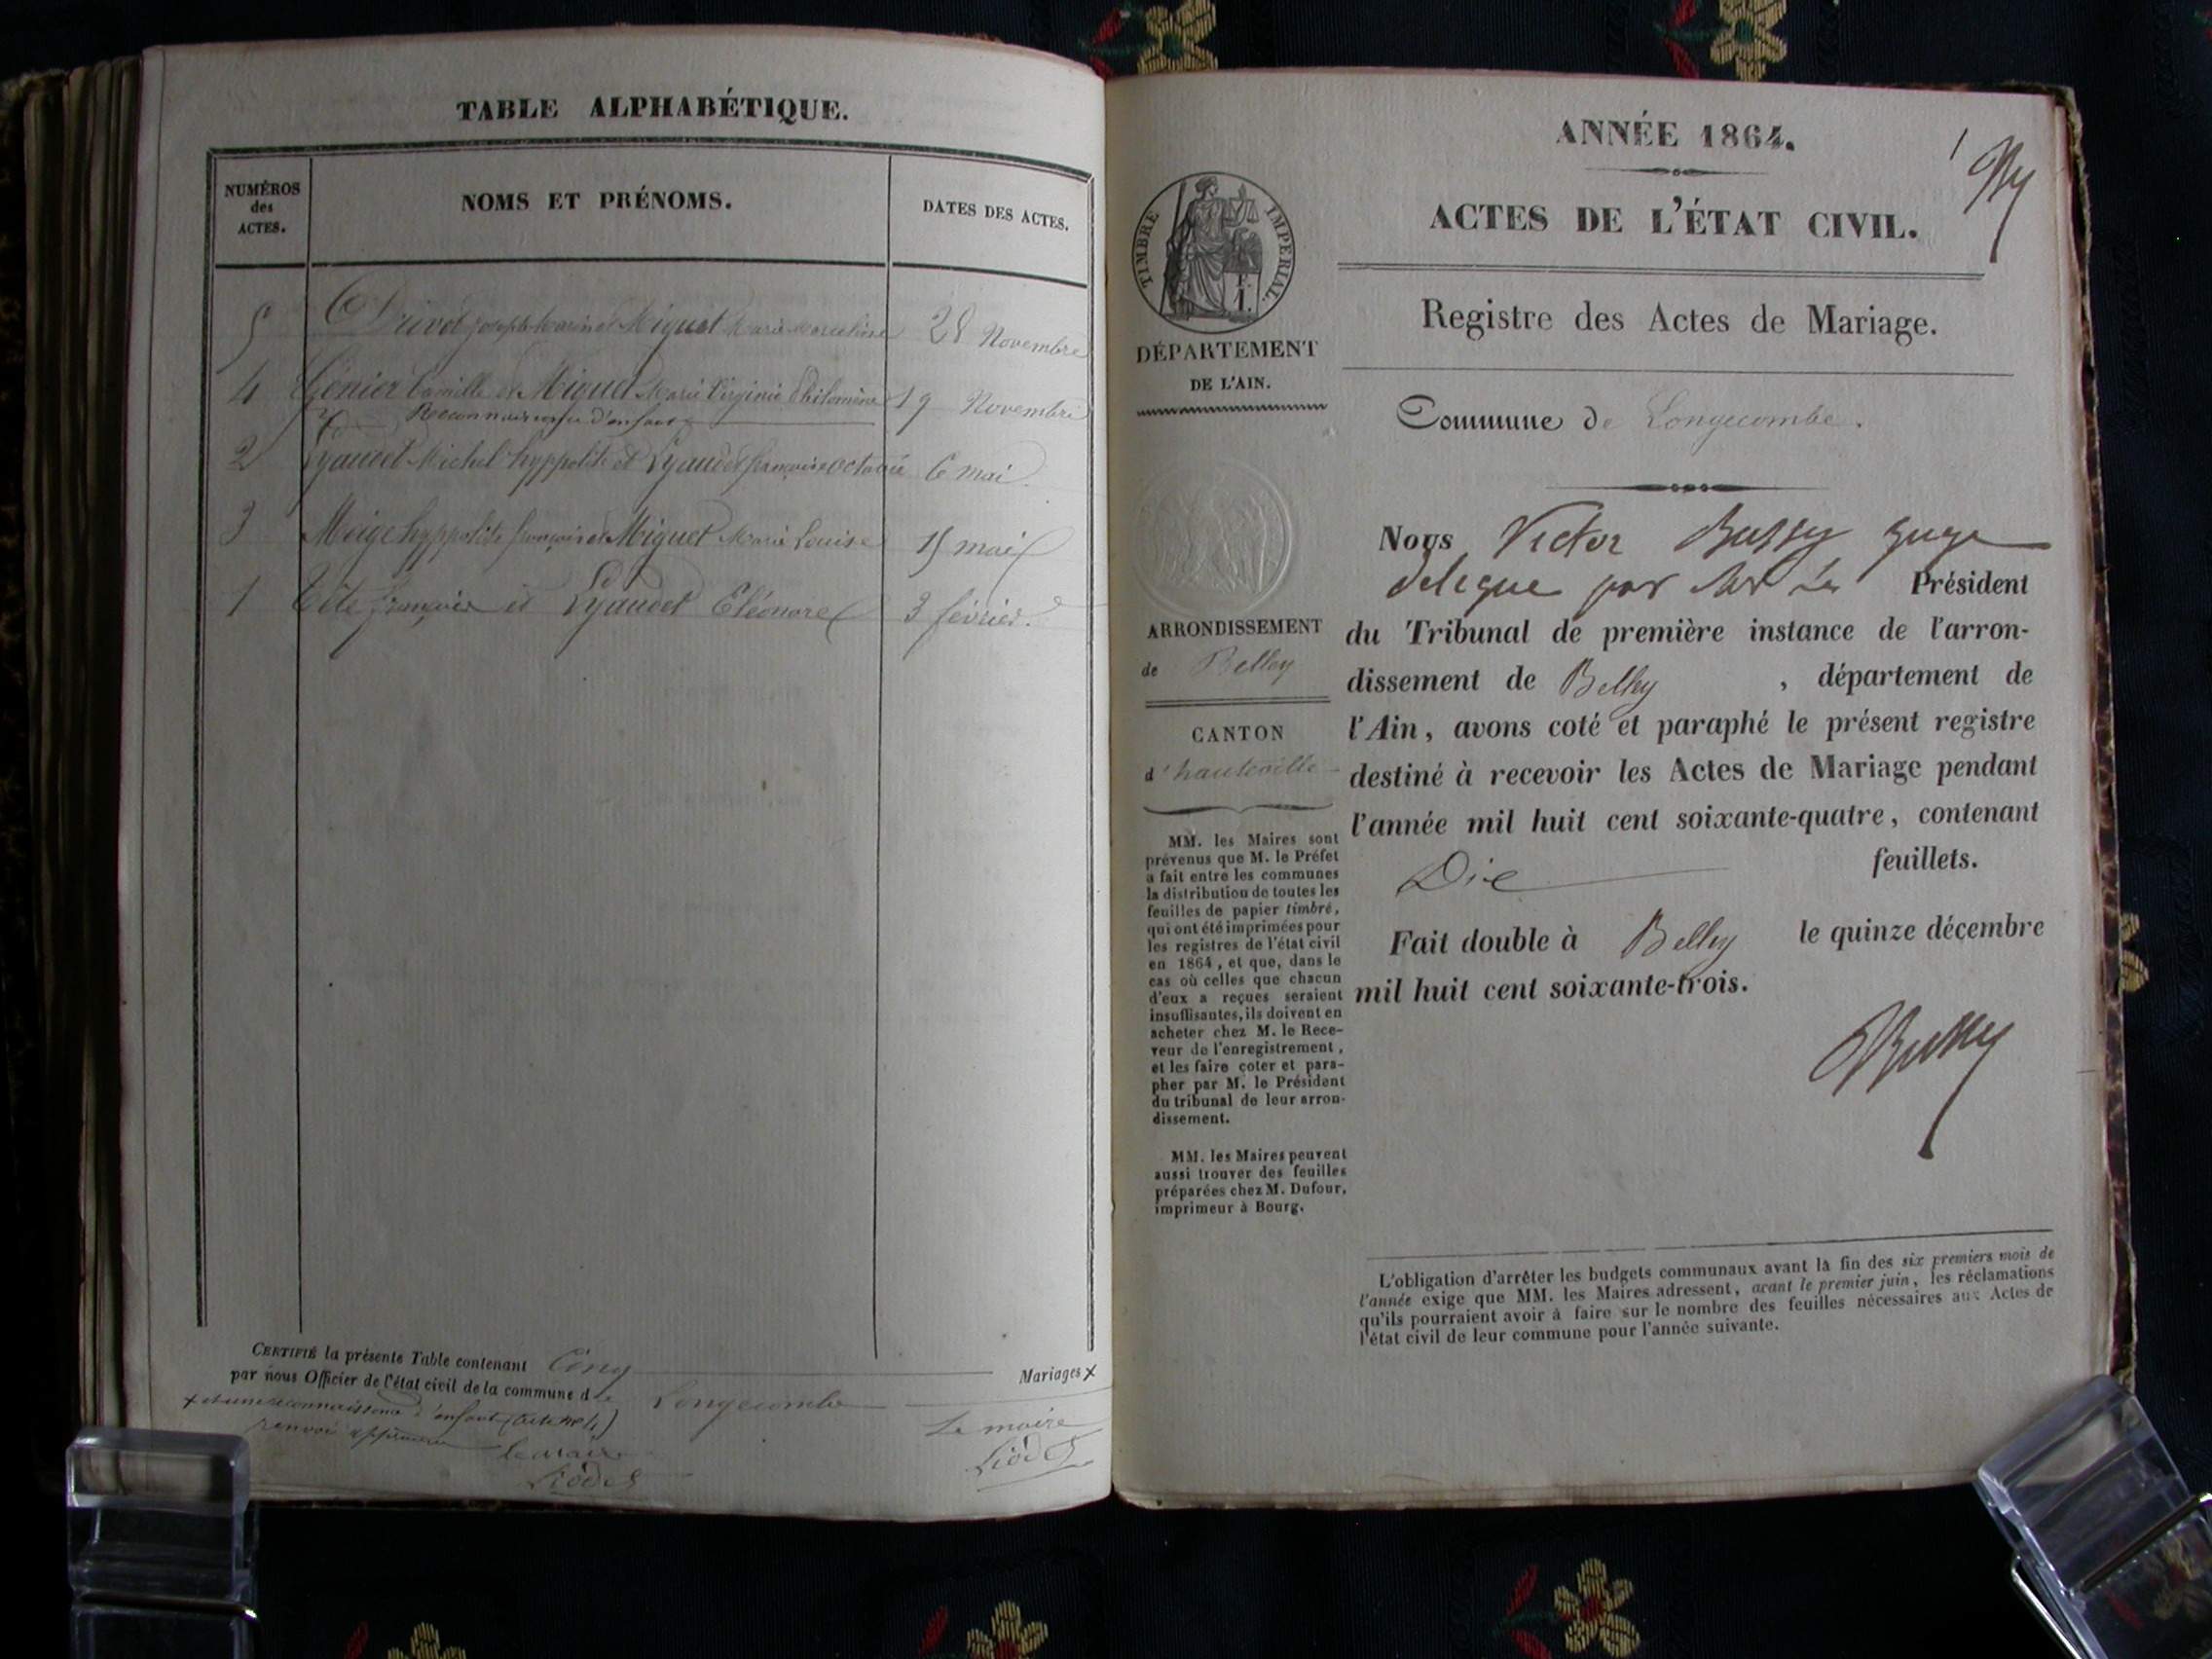 TABLE ALPHABÉTIQUE.
NUMÉROS
des
ACTES.
NOMS ET PRÉNOMS.
DATES DES ACTES.
5 Drivet joseph marin et Miguet marie marceline 28 Novembre
4 Génier Camille et Miguet Marie Virginie Philomène 19 Novembre
Reconnaissance d'enfant
2 Lyaudet Michel hyppolite et Lyaudet françoise octavie 6 mai
3 Meige hyppolite françois et Miguet Marie Louise 15 mai
1 Tête françois et Lyaudet Eléonore 3 février.
CERTIFIÉ la présente Table contenant Cinq Mariages x
par nous Officier de l'état civil de la commune de Longecombe
x et une reconnaissance d'enfant (acte n° 4)
renvoi approuvé
Le maire
Liodet
Le maire
Liodet
ANNÉE 1864.
1
ACTES DE L'ÉTAT CIVIL.
TIMBRE IMPERIAL.
Registre des Actes de Mariage.
DÉPARTEMENT
DE L'AIN.
Commune de Longecombe.
ARRONDISSEMENT
de Belley
CANTON
d'hauteville
MM. les Maires sont
prévenus que M. le Préfet
a fait entre les communes
la distribution de toutes les
feuilles de papier timbré,
qui ont été imprimées pour
les registres de l'état civil
en 1864, et que, dans le
cas où celles que chacun
d'eux a reçues seraient
insuffisantes, ils doivent en
acheter chez M. le Rece-
veur de l'enregistrement,
et les faire coter et para-
pher par M. le Président
du tribunal de leur arron-
dissement.
MM. les Maires peuvent
aussi trouver des feuilles
préparées chez M. Dufour,
imprimeur à Bourg.
Nous Victor Bussy Juge
délégué par Mr Le Président
du Tribunal de première instance de l'arron-
dissement de Belley, département de
l'Ain, avons coté et paraphé le présent registre
destiné à recevoir les Actes de Mariage pendant
l'année mil huit cent soixante-quatre, contenant
Dix feuillets.
Fait double à Belley le quinze décembre
mil huit cent soixante-trois.
Bussy
L'obligation d'arrêter les budgets communaux avant la fin des six premiers mois de
l'année exige que MM. les Maires adressent, avant le premier juin, les réclamations
qu'ils pourraient avoir à faire sur le nombre des feuilles nécessaires aux Actes de
l'état civil de leur commune pour l'année suivante.